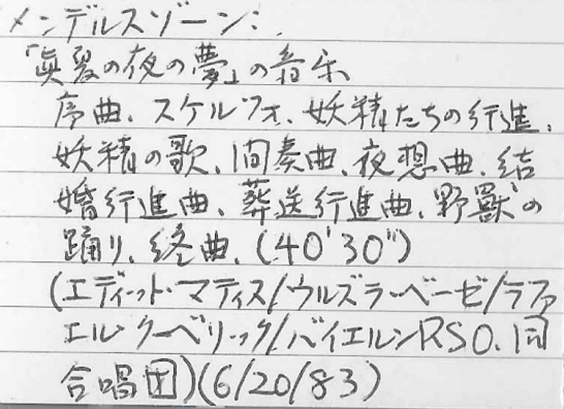 メンデルスゾーン:
「眞夏の夜の夢」の音乐
序曲、スケルツォ、妖精たちの行進、
妖精の歌、间奏曲、夜想曲、結
婚行進曲、葬送行進曲、野獣の
踊り、終曲、(40'30")
(エディット・マティス/ウルズラ・ベーゼ/ラファ
エル・クーベリック/バイエルンRSO、同
合唱団)(6/20/83)